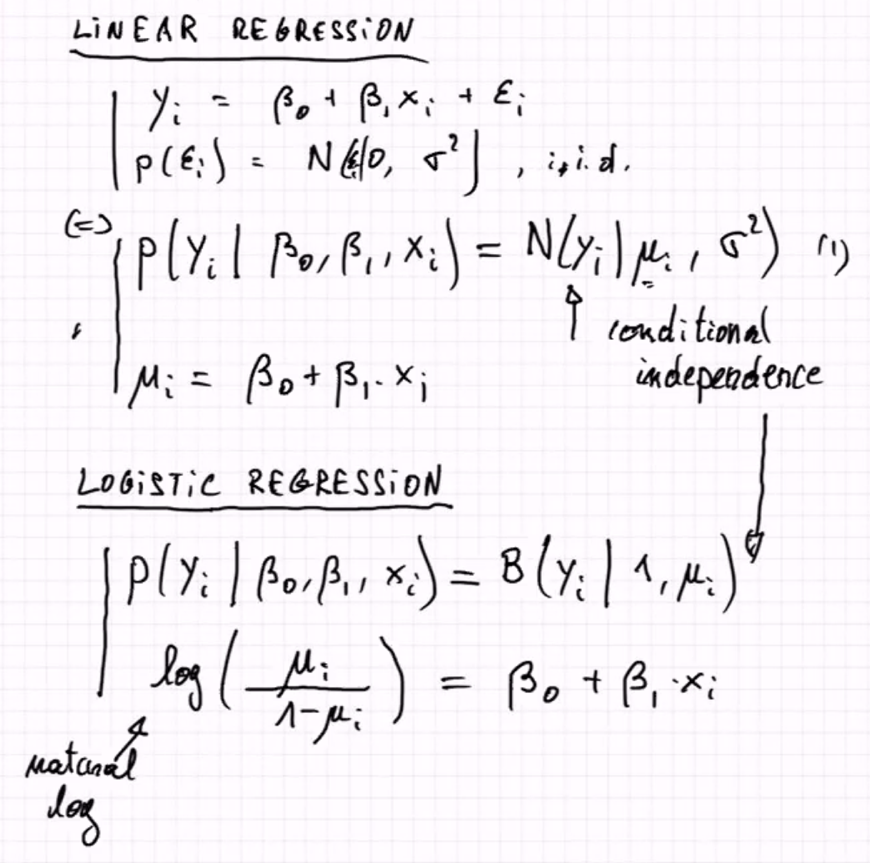 LINEAR REGRESSION
yᵢ = β₀ + β₁xᵢ + εᵢ
p(εᵢ) = N(εᵢ|0, σ²), i.i.d.
(=) p(yᵢ | β₀, β₁, xᵢ) = N(yᵢ | μᵢ, σ²) (1)
conditional
independence
μᵢ = β₀ + β₁·xᵢ
LOGISTIC REGRESSION
p(yᵢ | β₀, β₁, xᵢ) = B(yᵢ | 1, μᵢ)
log(μᵢ / 1-μᵢ) = β₀ + β₁·xᵢ
natural
log